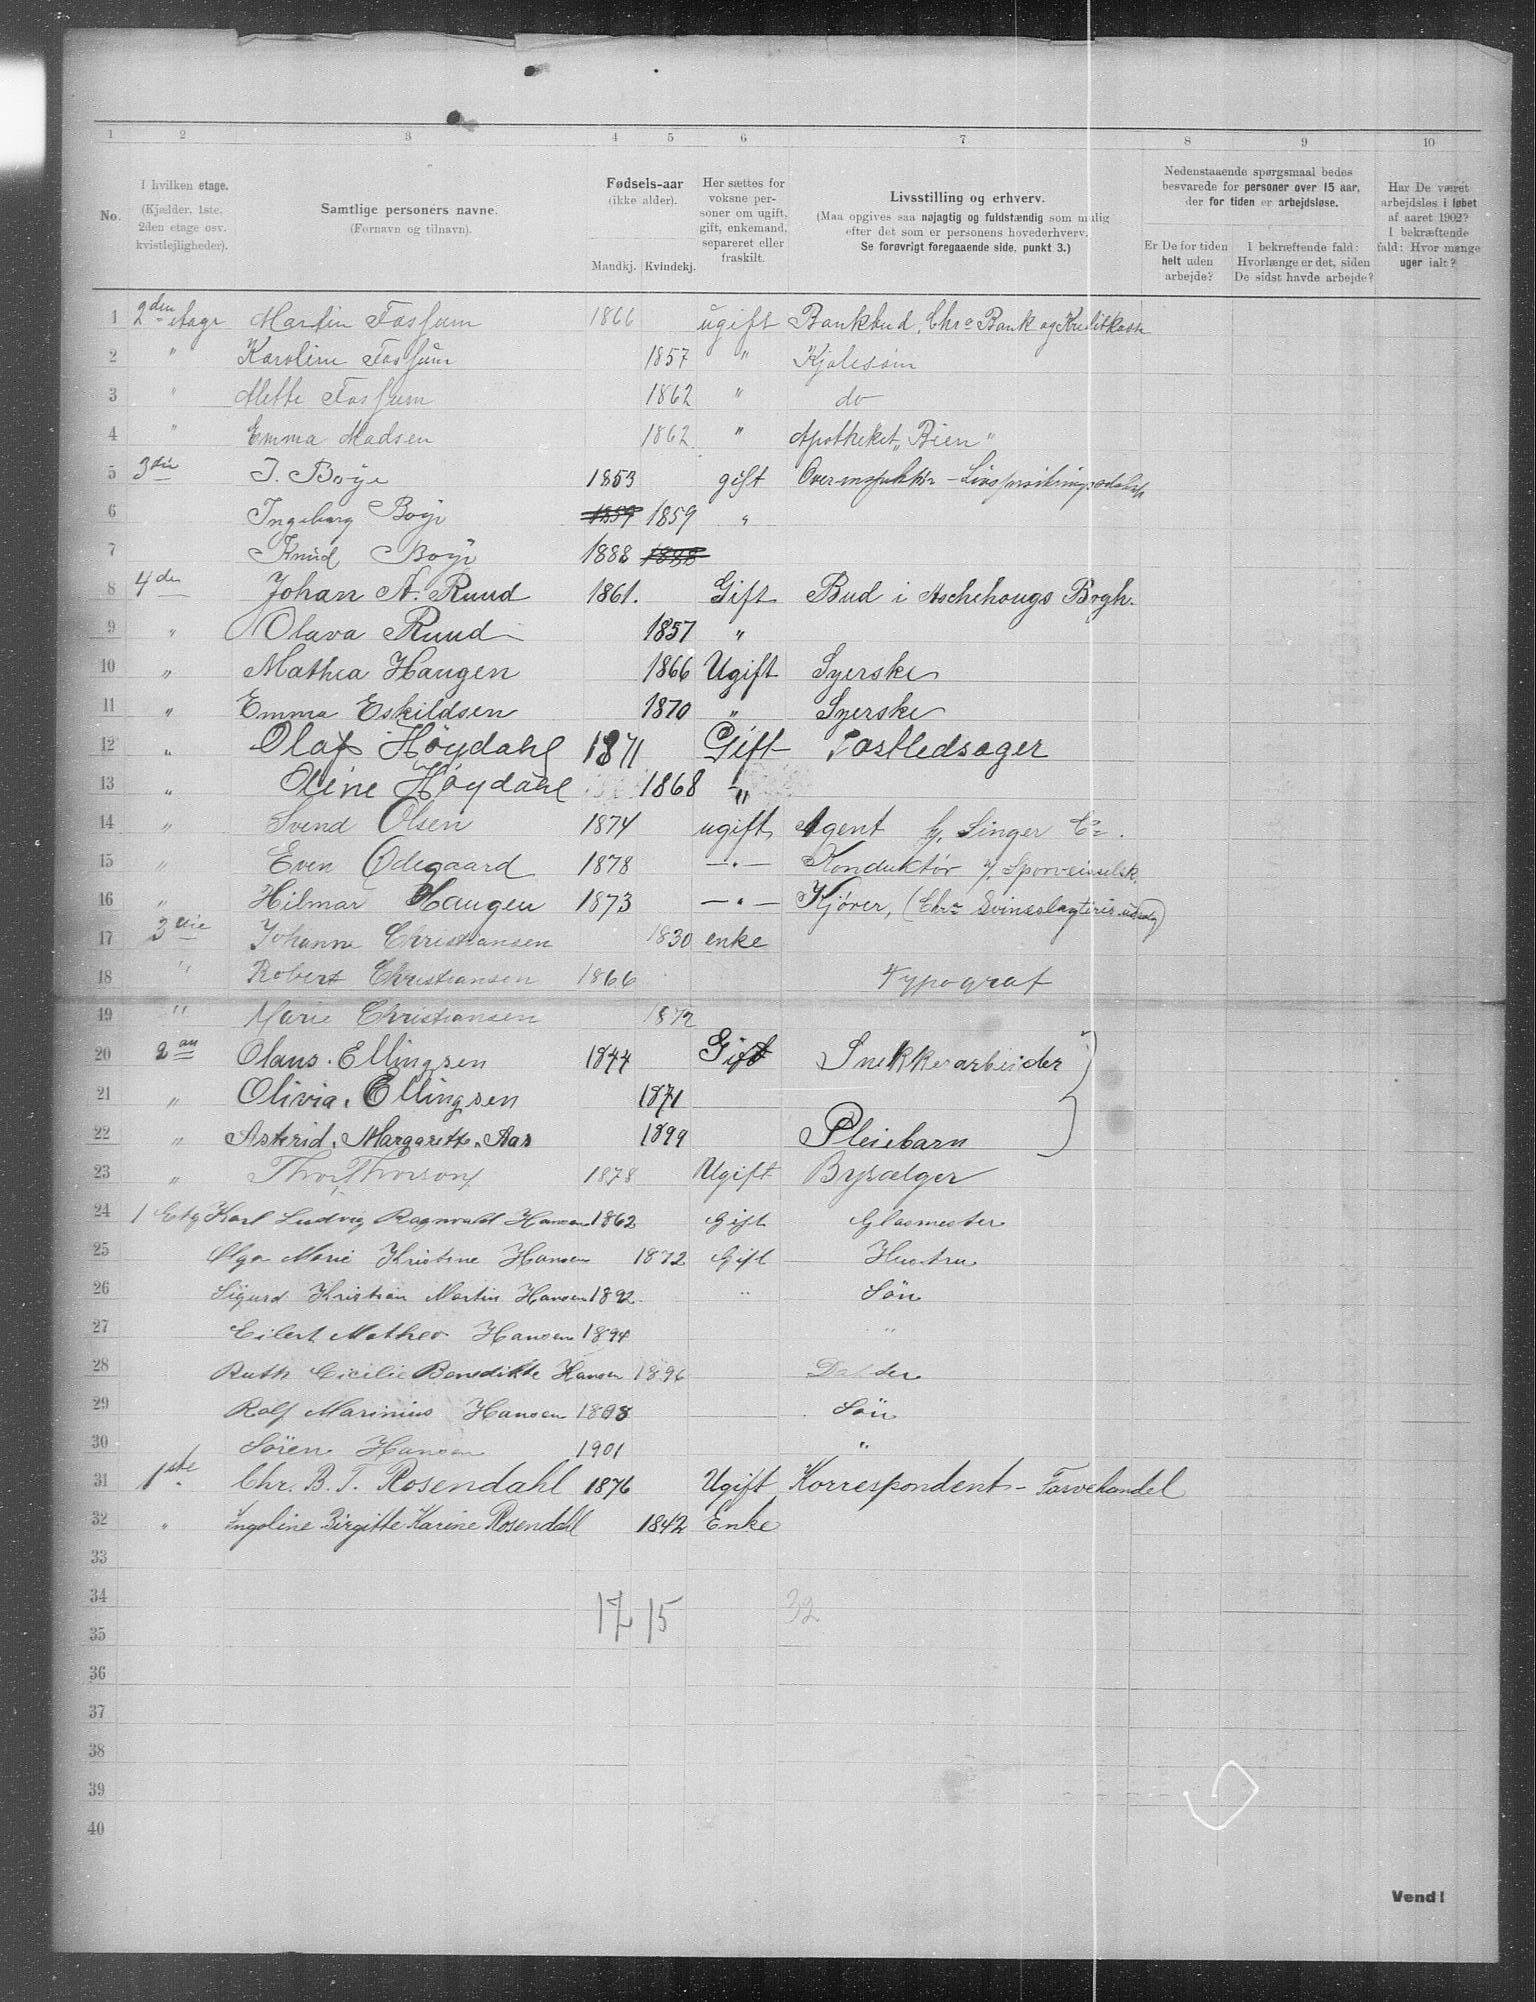 1 2 3 4 5 6 7 8 9 10
No.
I hvilken etage.
(Kjælder, 1ste, 2den etage osv. kvistlejligheder).
Samtlige personers navne.
(Fornavn og tilnavn).
Fødsels-aar
(ikke alder).
Mandkj. Kvindekj.
Her sættes for voksne personer om ugift, gift, enkemand, separeret eller fraskilt.
Livsstilling og erhverv.
(Maa opgives saa nøjagtig og fuldstændig som mulig efter det som er personens hovederhverv.
Se forøvrigt foregaaende side, punkt 3.)
Nedenstaaende spørgsmaal bedes besvarede for personer over 15 aar, der for tiden er arbejdsløse.
Er De for tiden helt uden arbejde?
I bekræftende fald: Hvorlænge er det, siden De sidst havde arbejde?
Har De været arbejdsløs i løbet af aaret 1902? I bekræftende fald: Hvor mange uger ialt?
1 2den etage Martin Fossum 1866 ugift Bankbud, Chra Bank og Kreditkasse
2 " Karoline Fossum 1857 " Kjolesøm
3 " Mette Fossum 1862 " do
4 " Emma Madsen 1862 " Apotheket „Bien"
5 3die J. Boye 1853 gift Overinspektør -
6 Ingeborg Boye 1859 1859 "
7 Knud Boye 1888 1888
8 4de Johan A. Ruud 1861. Gift Bud i Aschehougs Bogh.
9 " Olava Ruud 1857 "
10 " Mathea Haugen 1866 Ugift Syerske
11 " Emma Eskildsen 1870 " Syerske
12 " Olaf Høydahl 1871 Gift Postledsager
13 " Oline Høydahl 1868 "
14 " Svend Olsen 1874 ugift Agent Singer Co.
15 " Even Ødegaard 1878 —"— Konduktør v/ Sporveisselsk.
16 " Hilmar Haugen 1873 —"— Kjører, (Chra Svineslagteris udsalg)
17 3die Johanne Christiansen 1830 enke
18 " Robert Christiansen 1866 Typograf
19 " Marie Christiansen 1872
20 2an Olaus. Ellingsen 1844 Gift Snekkerarbeider
21 " Olivia. Ellingsen 1871
22 " Asterid. Margarethe. Aas 1899 Pleiebarn
23 " Thor Thorson 1878 Ugift Bysælger
24 1 Etg Karl Ludvig Ragnvald Hansen 1862 Gift Glasmester
25 Olga Marie Kristine Hansen 1872 Gift Hustru
26 Sigurd Kristian Martin Hansen 1892 " Søn
27 Eilert Matheo Hansen 1894 "
28 Ruth Cicilie Benedikte Hansen 1896 Datter
29 Rolf Marinius Hansen 1898 Søn
30 Søren Hansen 1901 "
31 1ste Chr. B. T. Rosendahl 1876 Ugift Korrespondent - Farvehandel
32 " Ingoline Birgitte Karine Rosendahl 1842 Enke
33
34 17 15 32
35
36
37
38
39
40
Vend!